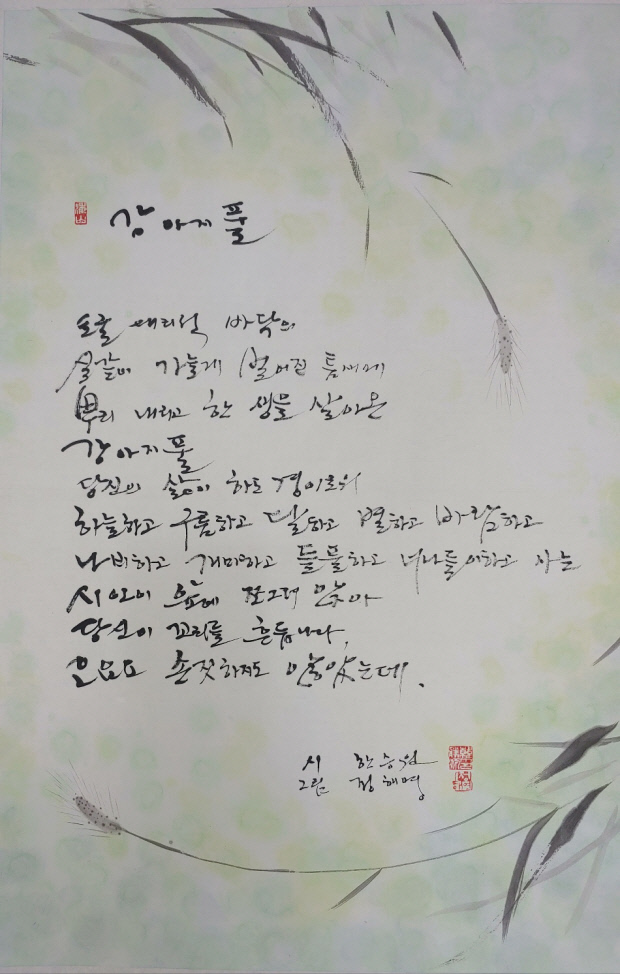 강아지풀
토굴 대리석 바닥의
실같이 가늘게 벌어진 틈서리에
뿌리 내리고 한 생을 살아온
강아지풀
당신의 삶이 하도 경이로워
하늘하고 구름하고 달하고 별하고 바람하고
나비하고 개미하고 들풀하고 너나들이하고 사는
시인이 옆에 쪼그려 앉아
당신이 꼬리를 흔듭니다,
오요요 손짓하지도 않았는데.
시 한승원
그림 정해영